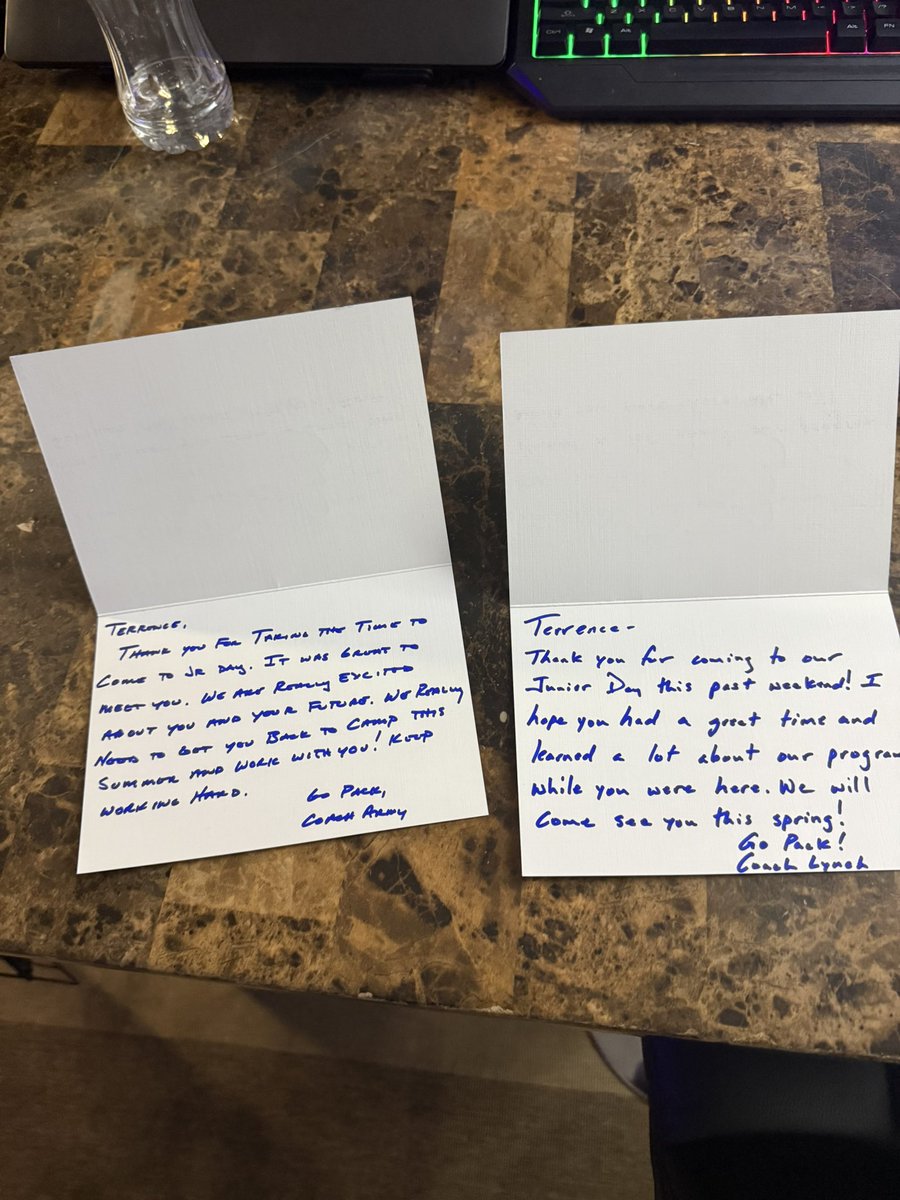 TERRENCE,
THANK YOU FOR TAKING THE TIME TO
COME TO JR DAY. IT WAS GREAT TO
MEET YOU. WE ARE REALLY EXCITED
ABOUT YOU AND YOUR FUTURE. WE REALLY
NEED TO GET YOU BACK TO CAMP THIS
SUMMER AND WORK WITH YOU! KEEP
WORKING HARD.
GO PACK,
COACH ARMY
Terrence-
Thank you for coming to our
Junior Day this past weekend! I
hope you had a great time and
learned a lot about our program
while you were here. We will
come see you this spring!
Go Pack!
Coach Lynch
Ctrl
Alt
Z X C V B N M
Alt
FN